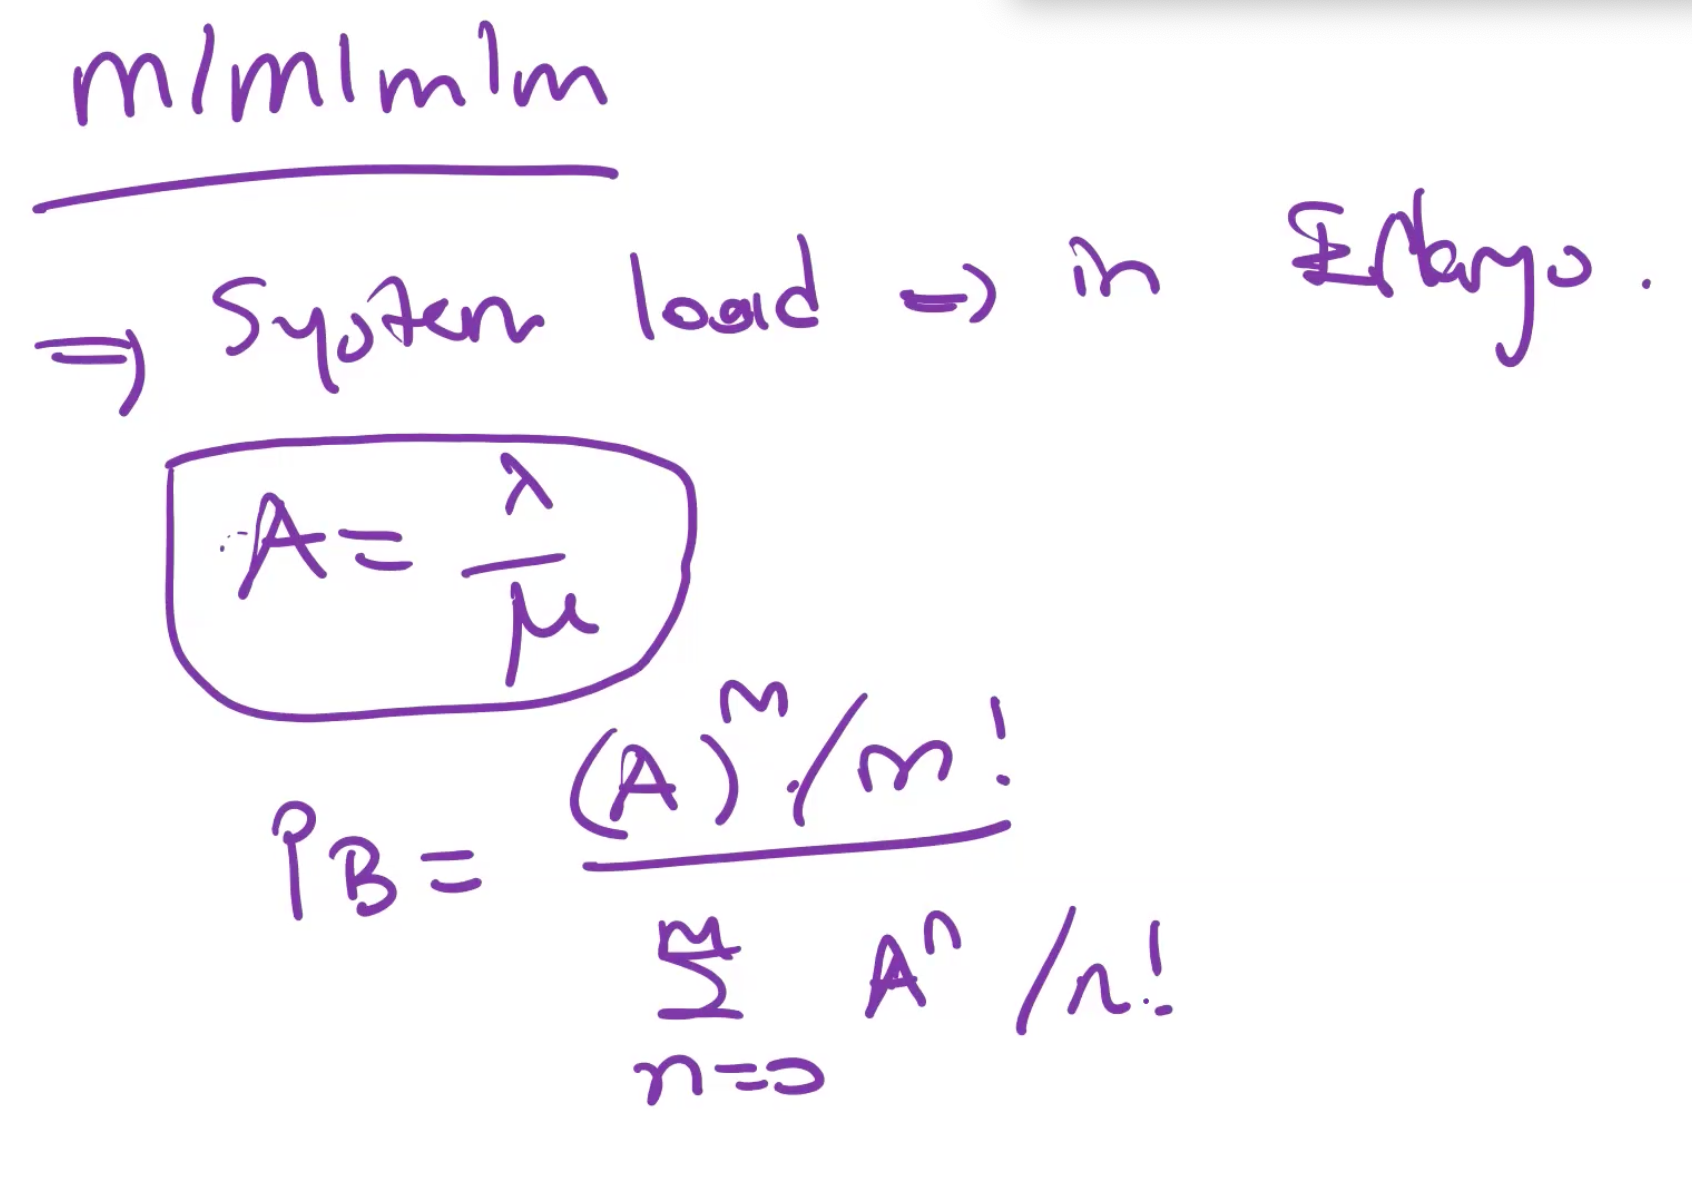 m/m/m/m
⇒ System load ⇒ in
A = λ/μ
P_B = ((A)^m / m!) / (∑_{n=0}^{m} A^n / n!)